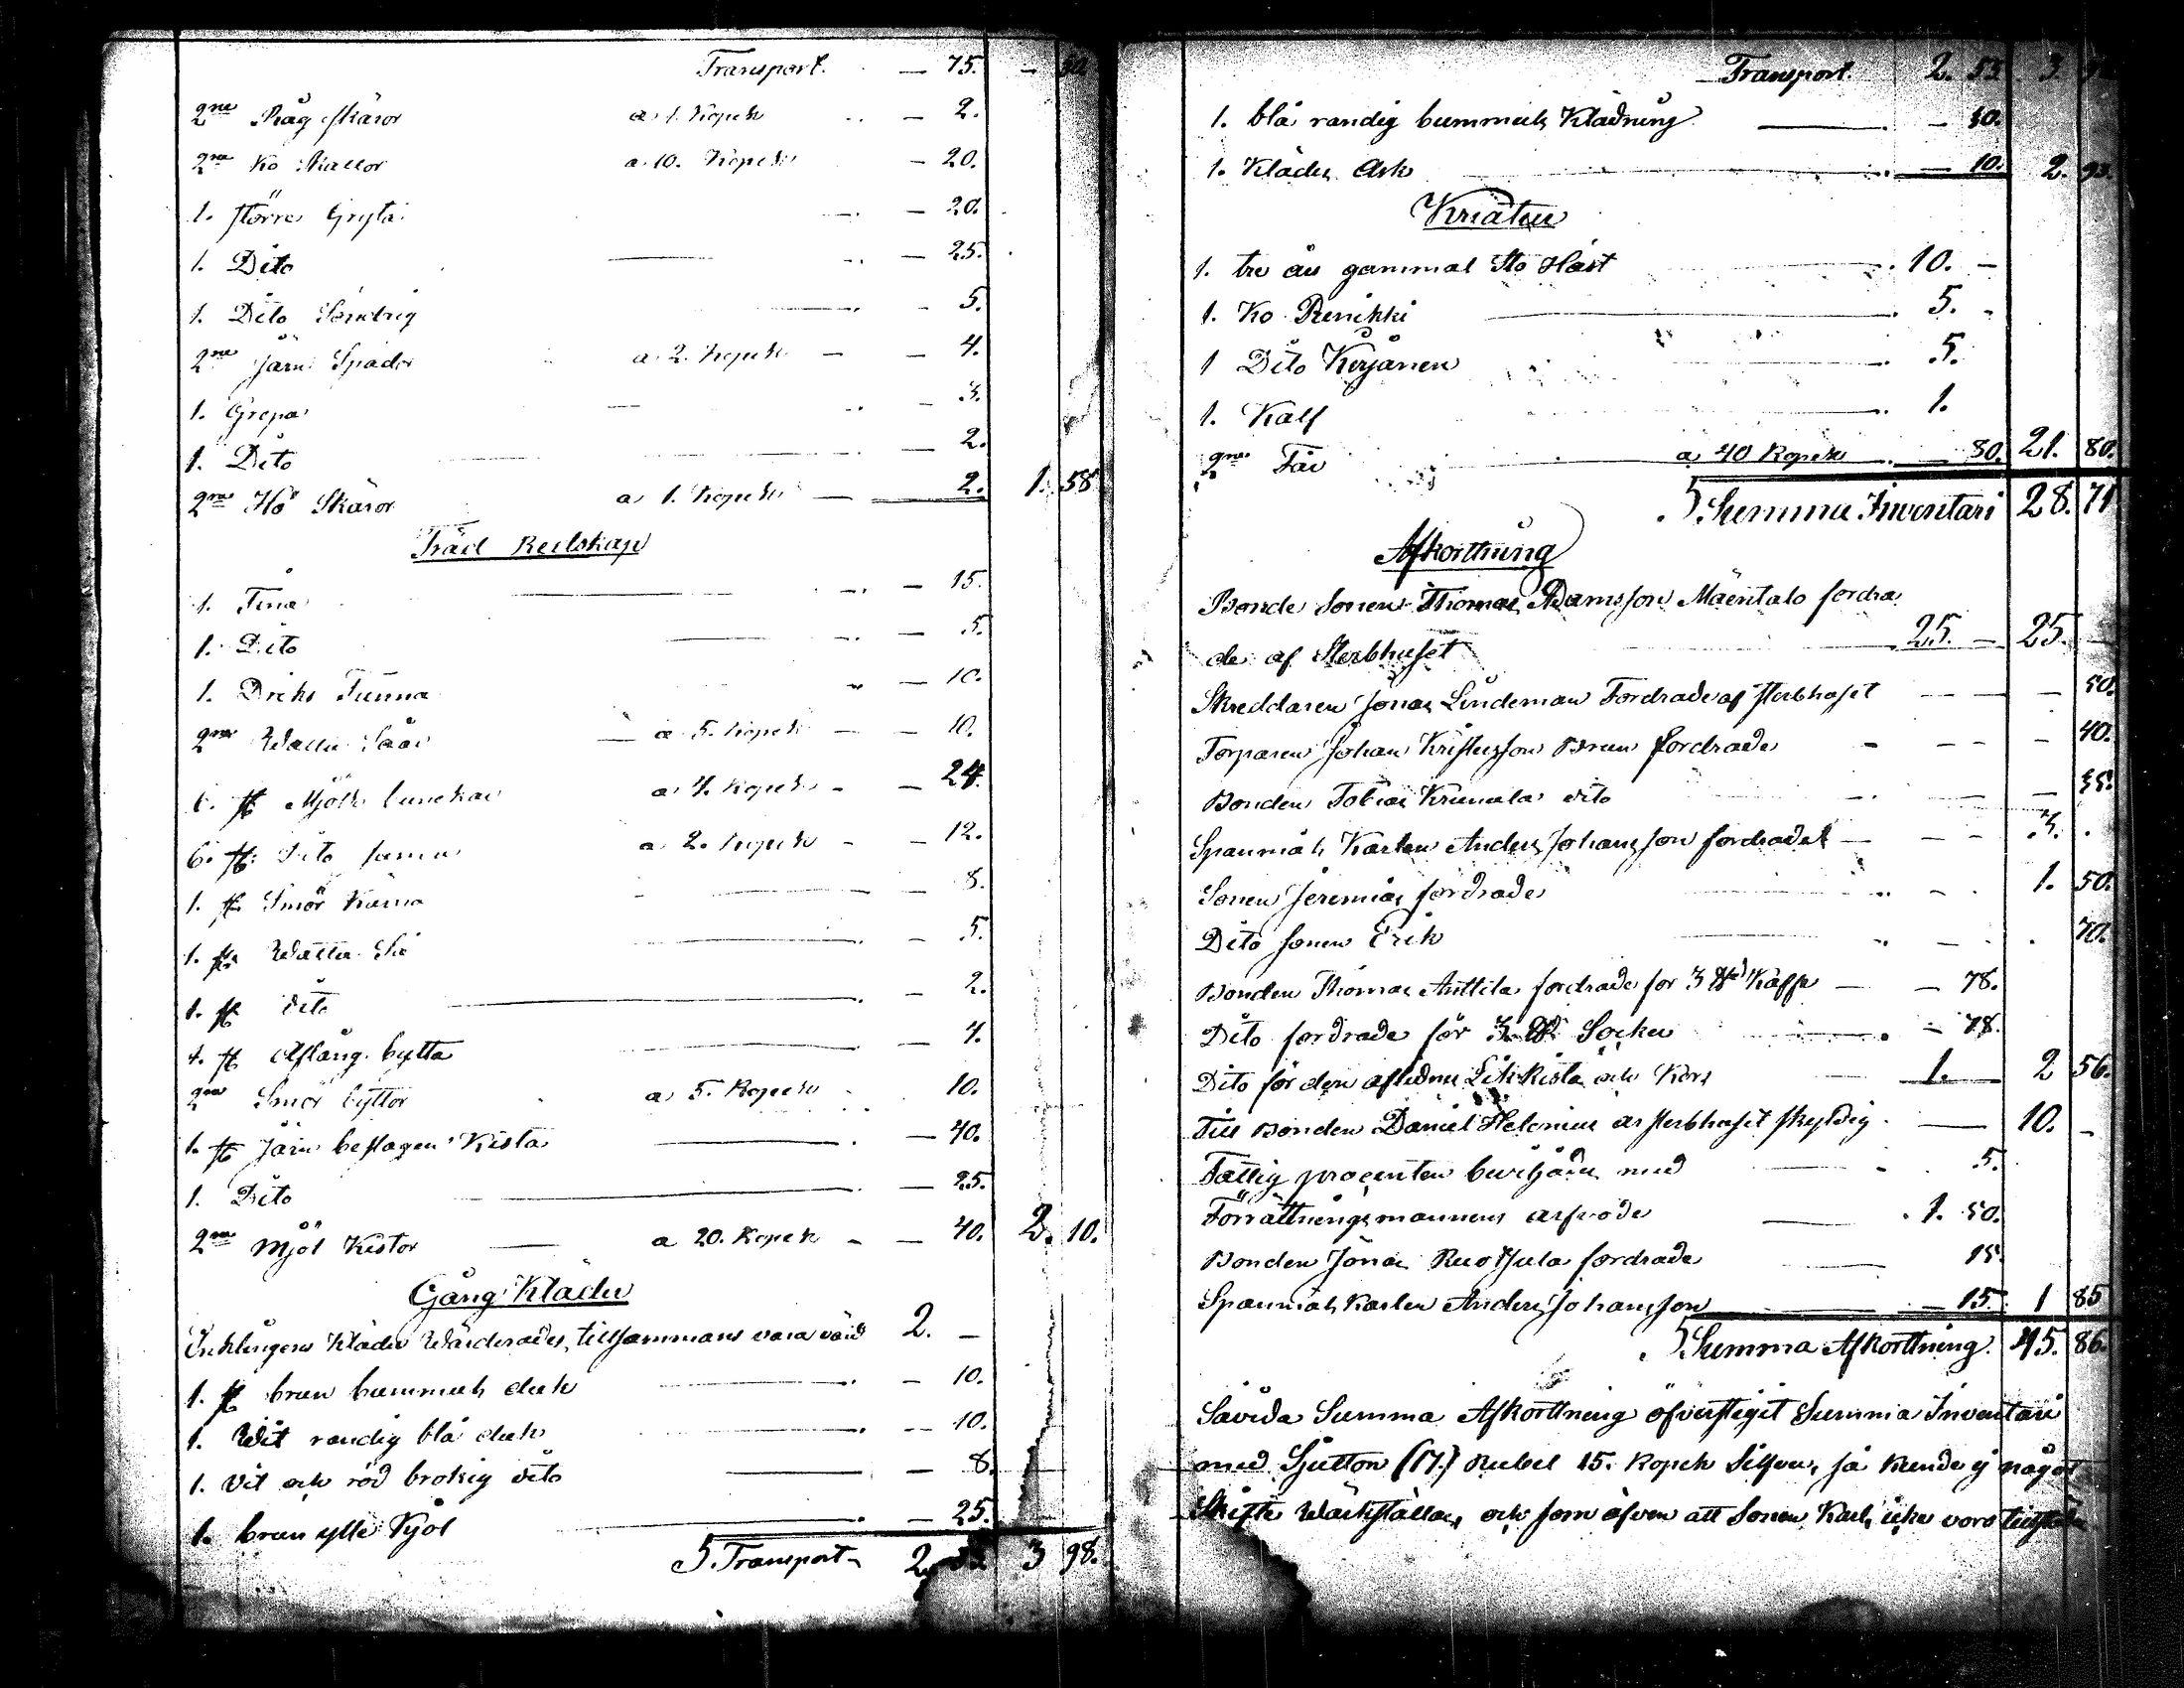 Transport. — 75. — 50
2ne Råg skäror a 1. Kopek — 2.
2ne Ko Skallor a 10. Kopek — 20.
1. större Gryta — 20.
1. Dito — 25.
1. Dito Söndrig — 5.
2ne Järn Spador a 2. Kopek — 4.
1. Grepa — 3.
1. Dito — 2.
2ne Hö Skäror a 1. Kopek — 2. 1. 58
Träd Redskap
1. Tina — 15.
1. Dito — 5.
1. Dricks Tunna — 10.
2ne Watten Såar a 5. Kopek — 10.
6. st Mjölk bunckar a 4. Kopek — 24.
6. st Dito a 2. Kopek — 12.
1. st Smör Kärna — 8.
1. st Watten Så — 5.
1. st dito — 2.
1. st Aflång bytta — 4.
2ne Smör byttor a 5. Kopek 10.
1. st Järn beslagen Kista — 40.
1. Dito — 25.
2ne Mjöl Kistor — a 20. Kopek — 40. 2. 10.
Gång Kläder
Enklingens Kläder Wärderades, tillsammans vara värd 2. —
1. st brun bummuls duk — 10.
1. Wit randig blå duk — 10.
1. Vit och röd brokig dito — 8.
1. brun ylle Kjol — 25.
S. Transport 2. 53 3 98.
Transport. 2. 53 3. 98
1. blå randig bummuls Klädning — 30.
1. Kläder Ask — 10. 2. 93.
Kriatur
1. tre års gammal Sto Häst 10. —
1. Ko Renikki 5. —
1 Dito Kerjänen 5.
1. Kalf 1.
2ne Får a 40 Kopek — 80. 21. 80.
Summa Inventari 28. 71
Afkorttning
Bonde Sonen Thomas Adamsson Mäentalo fordra
de af Sterbhuset 25. — 25. —
Skreddaren Jonas Lindeman Fordrade af sterbhuset — 50.
Torparen Johan Kristersson Brun fordrade — 40.
Bonden Tobias Krunala dito — 35.
Spanmåls Karlen Anders Johansson fordradet — 3.
Sonen Jeremias fordrade 1. 50.
Dito sonen Erik 70.
Bonden Thomas Anttila fordrade for 3 ℔d Kaffe — 78.
Dito fordrade för 3 ℔ Socker — 78.
Dito för den aflidnes Likkista och Kors 1. — 2 56.
Till Bonden Daniel Helenius är sterbhuset skyldig 10. —
Fattig procenten beviljades med 5.
Förrättningsmannens arfvode 1. 50.
Bonden Jonas Ruotsula fordrade 15.
Spanmåls Karlen Anders Johansson — 15. 1 85
Summa Afkorttning. 45. 86.
Såvida Summa Afkorttning öfverstiget Summa Inventari
med Sjutton (17.) Rubel 15. Kopek Silfver, så Kunde ej något
Skifte Wärkställas, och som äfven att Sonen Karl icke vore